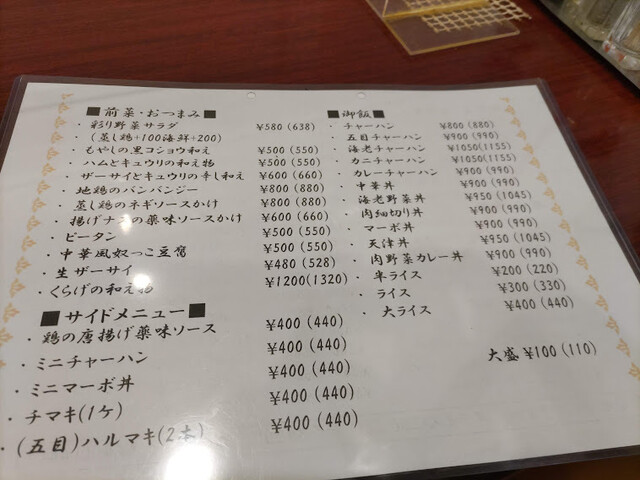 ■前菜・おつまみ■
・彩り野菜サラダ ¥580(638)
・(蒸し鶏+100海鮮+200)
・もやしの黒コショウ和え ¥500(550)
・ハムとキュウリの和え物 ¥500(550)
・ザーサイとキュウリの辛し和え ¥600(660)
・地鶏のバンバンジー ¥800(880)
・蒸し鶏のネギソースかけ ¥800(880)
・揚げナスの薬味ソースかけ ¥600(660)
・ピータン ¥500(550)
・中華風奴っこ豆腐 ¥500(550)
・生ザーサイ ¥480(528)
・くらげの和え物 ¥1200(1320)
■サイドメニュー■
・鶏の唐揚げ薬味ソース ¥400(440)
・ミニチャーハン ¥400(440)
・ミニマーボ丼 ¥400(440)
・チマキ(1ケ) ¥400(440)
・(五目)ハルマキ(2本) ¥400(440)
■御飯■
・チャーハン ¥800(880)
・五目チャーハン ¥900(990)
・海老チャーハン ¥1050(1155)
・カニチャーハン ¥1050(1155)
・カレーチャーハン ¥900(990)
・中華丼 ¥900(990)
・海老野菜丼 ¥950(1045)
・肉細切り丼 ¥900(990)
・マーボ丼 ¥900(990)
・天津丼 ¥950(1045)
・肉野菜カレー丼 ¥900(990)
・半ライス ¥200(220)
・ライス ¥300(330)
・大ライス ¥400(440)
大盛¥100(110)